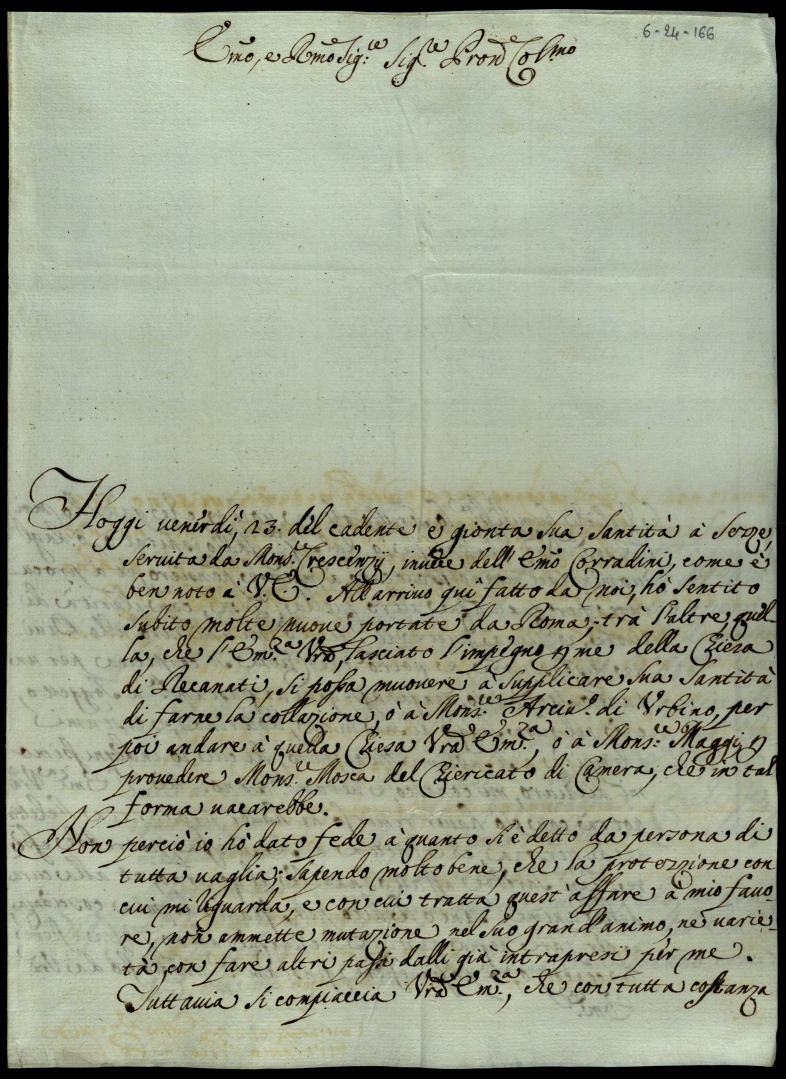 6-24-166
Emo, e Rmo Sig:re Sig.re Pron Col:mo
Hoggi venerdì, 23. del cadente è gionta Sua Santità à Sezze,
servita da Mons.r Crescenzij, invece dell' Emo Corradini, come è
ben noto à V.E. All'arrivo quì fatto da noi, hò sentito
subito molte nuove portate da Roma, trà l'altre quel-
la, che l'Em.za Vra, lasciato l'impegno p me della Chiesa
di Recanati, si possa muovere à supplicare Sua Santità
di farne la collazione, ò à Mons.re Arciv.o di Urbino, per
poi andare à quella Chiesa Vra Em.za, ò à Mons.re Maggi p
provedere Mons.re Mosca del Chiericato di Camera, che in tal
forma vacarebbe.
Non perciò io hò dato fede à quanto si è detto da persona di
tutta vaglia; sapendo molto bene, che la protezzione con
cui mi riguarda, e con cui tratta quest'affare à mio favo-
re, non ammette mutazione nel suo grand'animo, ne varie-
tà con fare altri passi dalli già intrapresi per me.
Tuttavia si compiaccia Vra Em.za, che con tutta costanza